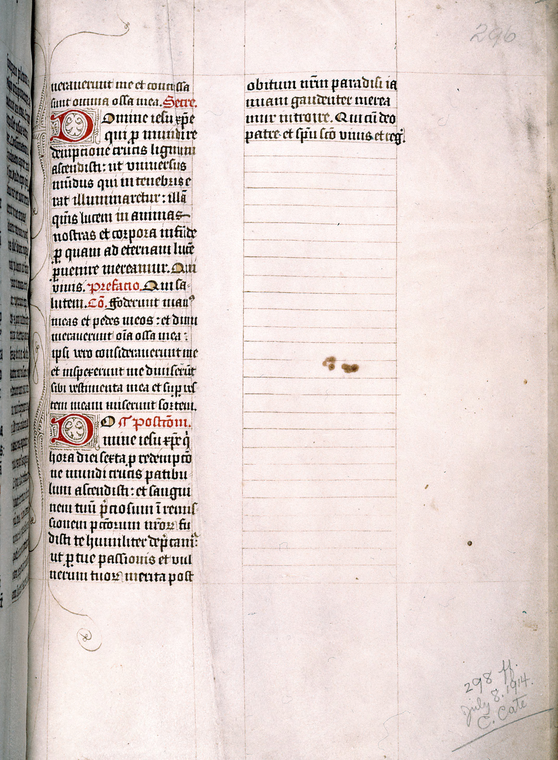 296
uerauerunt me et concussa
sunt omnia ossa mea. Secre.
Domine iesu xp̄e
qui p mundi re
dempcione crucis lignum
ascendisti: ut vniuersus
mūdus qui in tenebris e
rat illuminaretur: illā
qm̄s lucem in animas
nostras et corpora infūde
p quam ad eternam lucē
puenire mereamur. Qui
viuis. Prefacio. Qui sa-
lutem. Cō. ffoderunt man9
meas et pedes meos: et dinu
merauerunt oīa ossa mea:
ipsi vero considerauerunt me
et inspexerunt me diuiserūt
sibi vestimenta mea et sup ves
tem meam miserunt sortem.
DO Postcōm.
mine iesu xp̄e q̄
hora diei sexta p redempcō
ne mundi crucis patibu
lum ascendisti: et sangui
nem tuū p̄ciosum ī remis
sionem pctōrum nr̄or fu
disti te humiliter dep̄camr:
ut p tue passionis et vul
nerum tuor merita post
obitum nr̄m paradisi ia
nuam gaudenter merea
mur introire. Qui cū deo
patre et spū scō viuis et reḡ.
298 ff.
July 8. 1914.
C. Cate